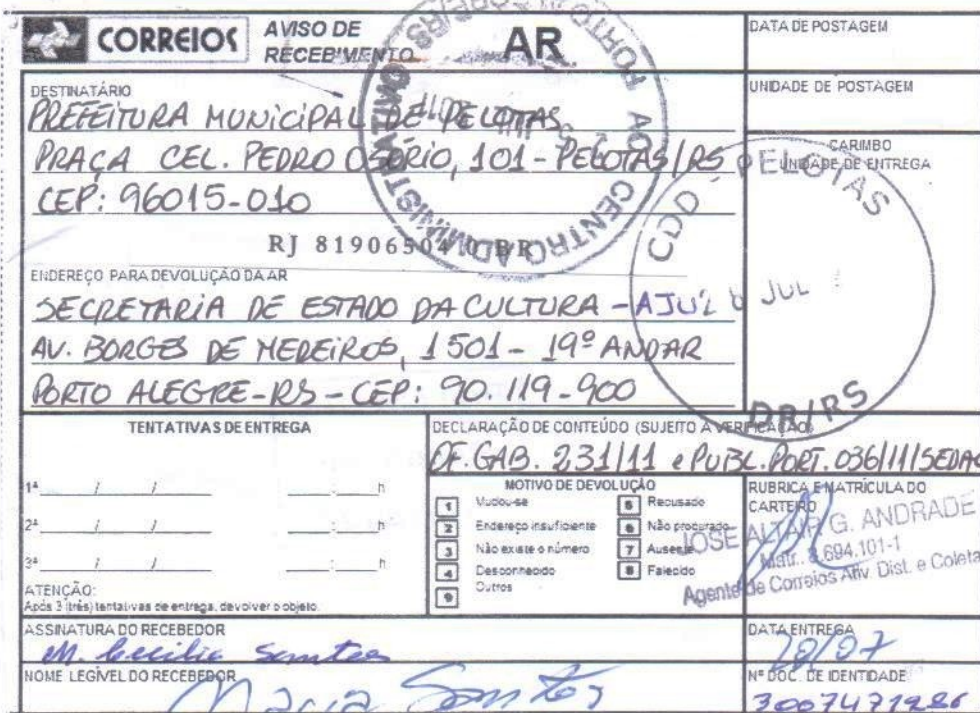 CORREIOS
AVISO DE RECEBIMENTO
AR
DATA DE POSTAGEM
UNIDADE DE POSTAGEM
DESTINATÁRIO
PREFEITURA MUNICIPAL DE PELOTAS
PRAÇA CEL. PEDRO OSÓRIO, 101 - PELOTAS/RS
CEP: 96015-010
CARIMBO
UNIDADE DE ENTREGA
CDD, PELOTAS
JUL
DR/RS
AC CENTRO ADMINIST
RJ 81906504 BR
ENDEREÇO PARA DEVOLUÇÃO DA AR
SECRETARIA DE ESTADO DA CULTURA -
AV. BORGES DE MEDEIROS, 1501 - 19º ANDAR
PORTO ALEGRE-RS - CEP: 90.119-900
TENTATIVAS DE ENTREGA
1ª / / : h
2ª / / : h
3ª / / : h
ATENÇÃO:
Após 3 (três) tentativas de entrega, devolver o objeto.
DECLARAÇÃO DE CONTEÚDO (SUJEITO À VERIFICAÇÃO)
OF. GAB. 231/11 e PUBL. PORT. 036/11/SEDAC
MOTIVO DE DEVOLUÇÃO
1 Mudou-se
2 Endereço insuficiente
3 Não existe o número
4 Desconhecido
9 Outros
5 Recusado
6 Não procurado
7 Ausente
8 Falecido
RUBRICA E MATRÍCULA DO CARTEIRO
JOSE ALTAIR G. ANDRADE
Matr.: 8.694.101-1
Agente de Correios Ativ. Dist. e Coleta
ASSINATURA DO RECEBEDOR
M. Cecilia Santos
DATA ENTREGA
20/07
NOME LEGÍVEL DO RECEBEDOR
Maria Santos
Nº DOC. DE IDENTIDADE
3007471286